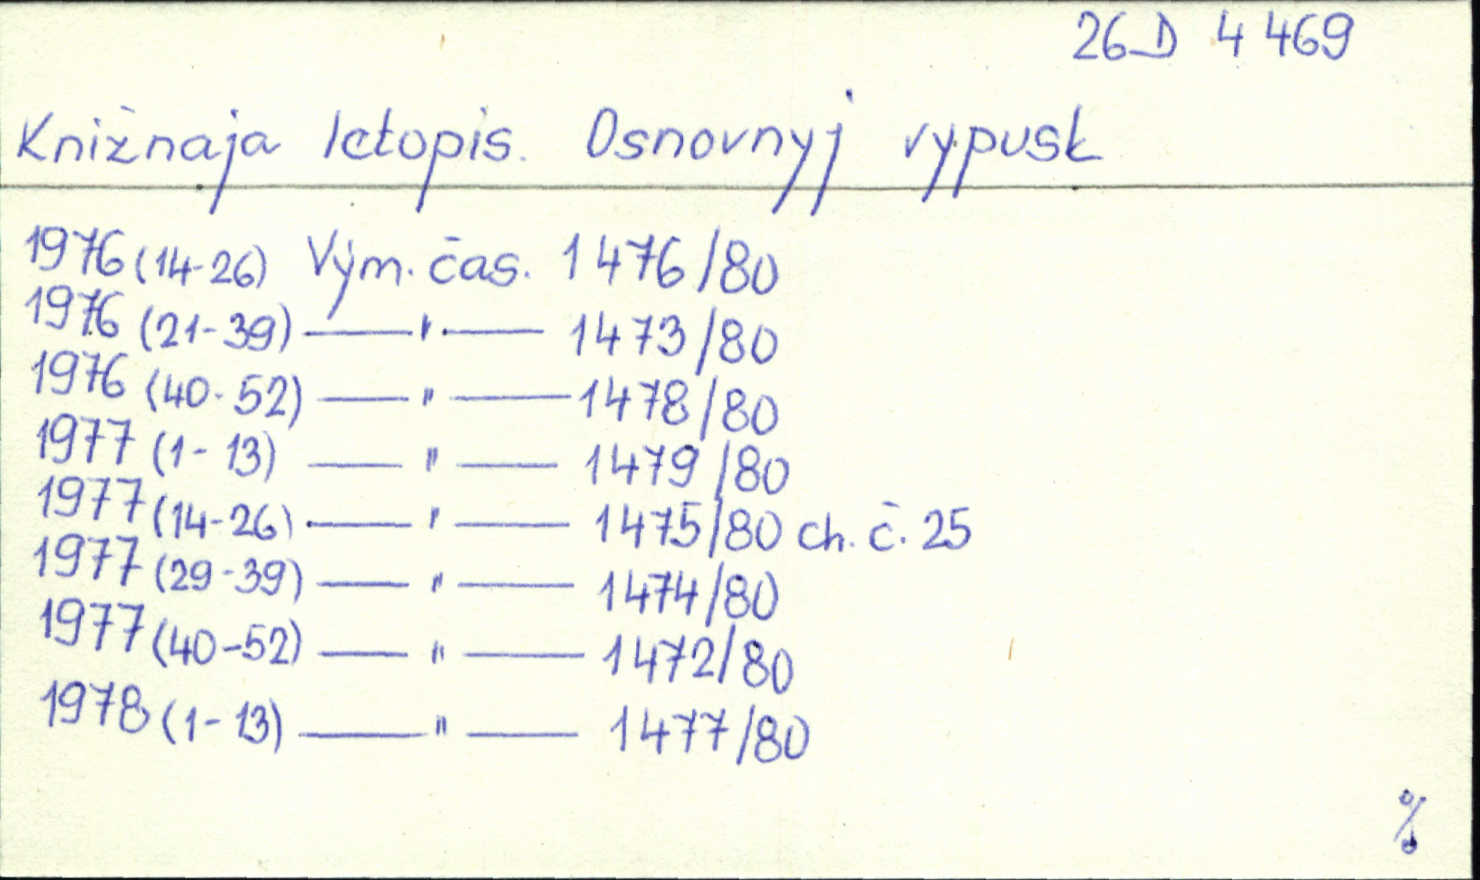 26 D 4 469
Knižnaja letopis. Osnovnyj vypusk
1976 (14-26) Vým. čas. 1476/80
1976 (21-39) —"— 1473/80
1976 (40-52) —"— 1478/80
1977 (1-13) —"— 1479/80
1977 (14-26) —"— 1475/80 ch. č. 25
1977 (29-39) —"— 1474/80
1977 (40-52) —"— 1472/80
1978 (1-13) —"— 1477/80
%